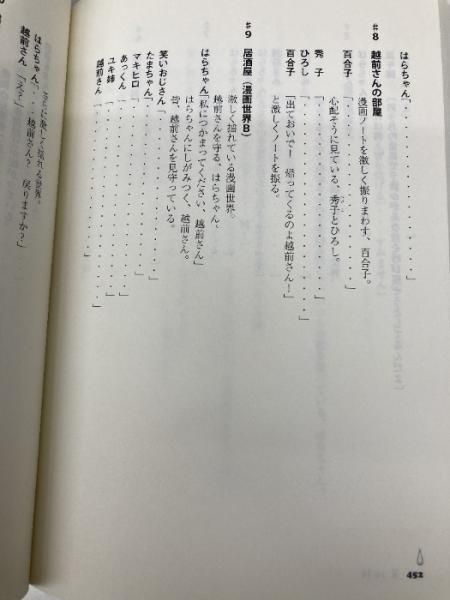 はらちゃん「・・・・・・・・・・・・・・」
#8 越前さんの部屋
漫画ノートを激しく振りまわす、百合子。
百合子「・・・・・・・・・・」
心配そうに見ている、秀子とひろし。
秀子「・・・・・・・・・・」
ひろし「・・・・・・・・・・」
百合子「出ておいで！ 帰ってくるのよ越前さん！」
と激しくノートを振る。
#9 居酒屋（漫画世界B）
激しく揺れている漫画世界。
越前さんを守る、はらちゃん。
はらちゃん「私につかまってください、越前さん」
はらちゃんにしがみつく、越前さん。
皆、越前さんを見守っている。
笑いおじさん「・・・・・・・・・・」
たまちゃん「・・・・・・・・・・」
マキヒロ「・・・・・・・・・・」
あっくん「・・・・・・・・・・」
ユキ姉「・・・・・・・・・・」
越前さん「・・・・・・・・・・」
さらに激しく揺れる世界。
はらちゃん「・・・越前さん？ 戻りますか？」
越前さん「え？」
452